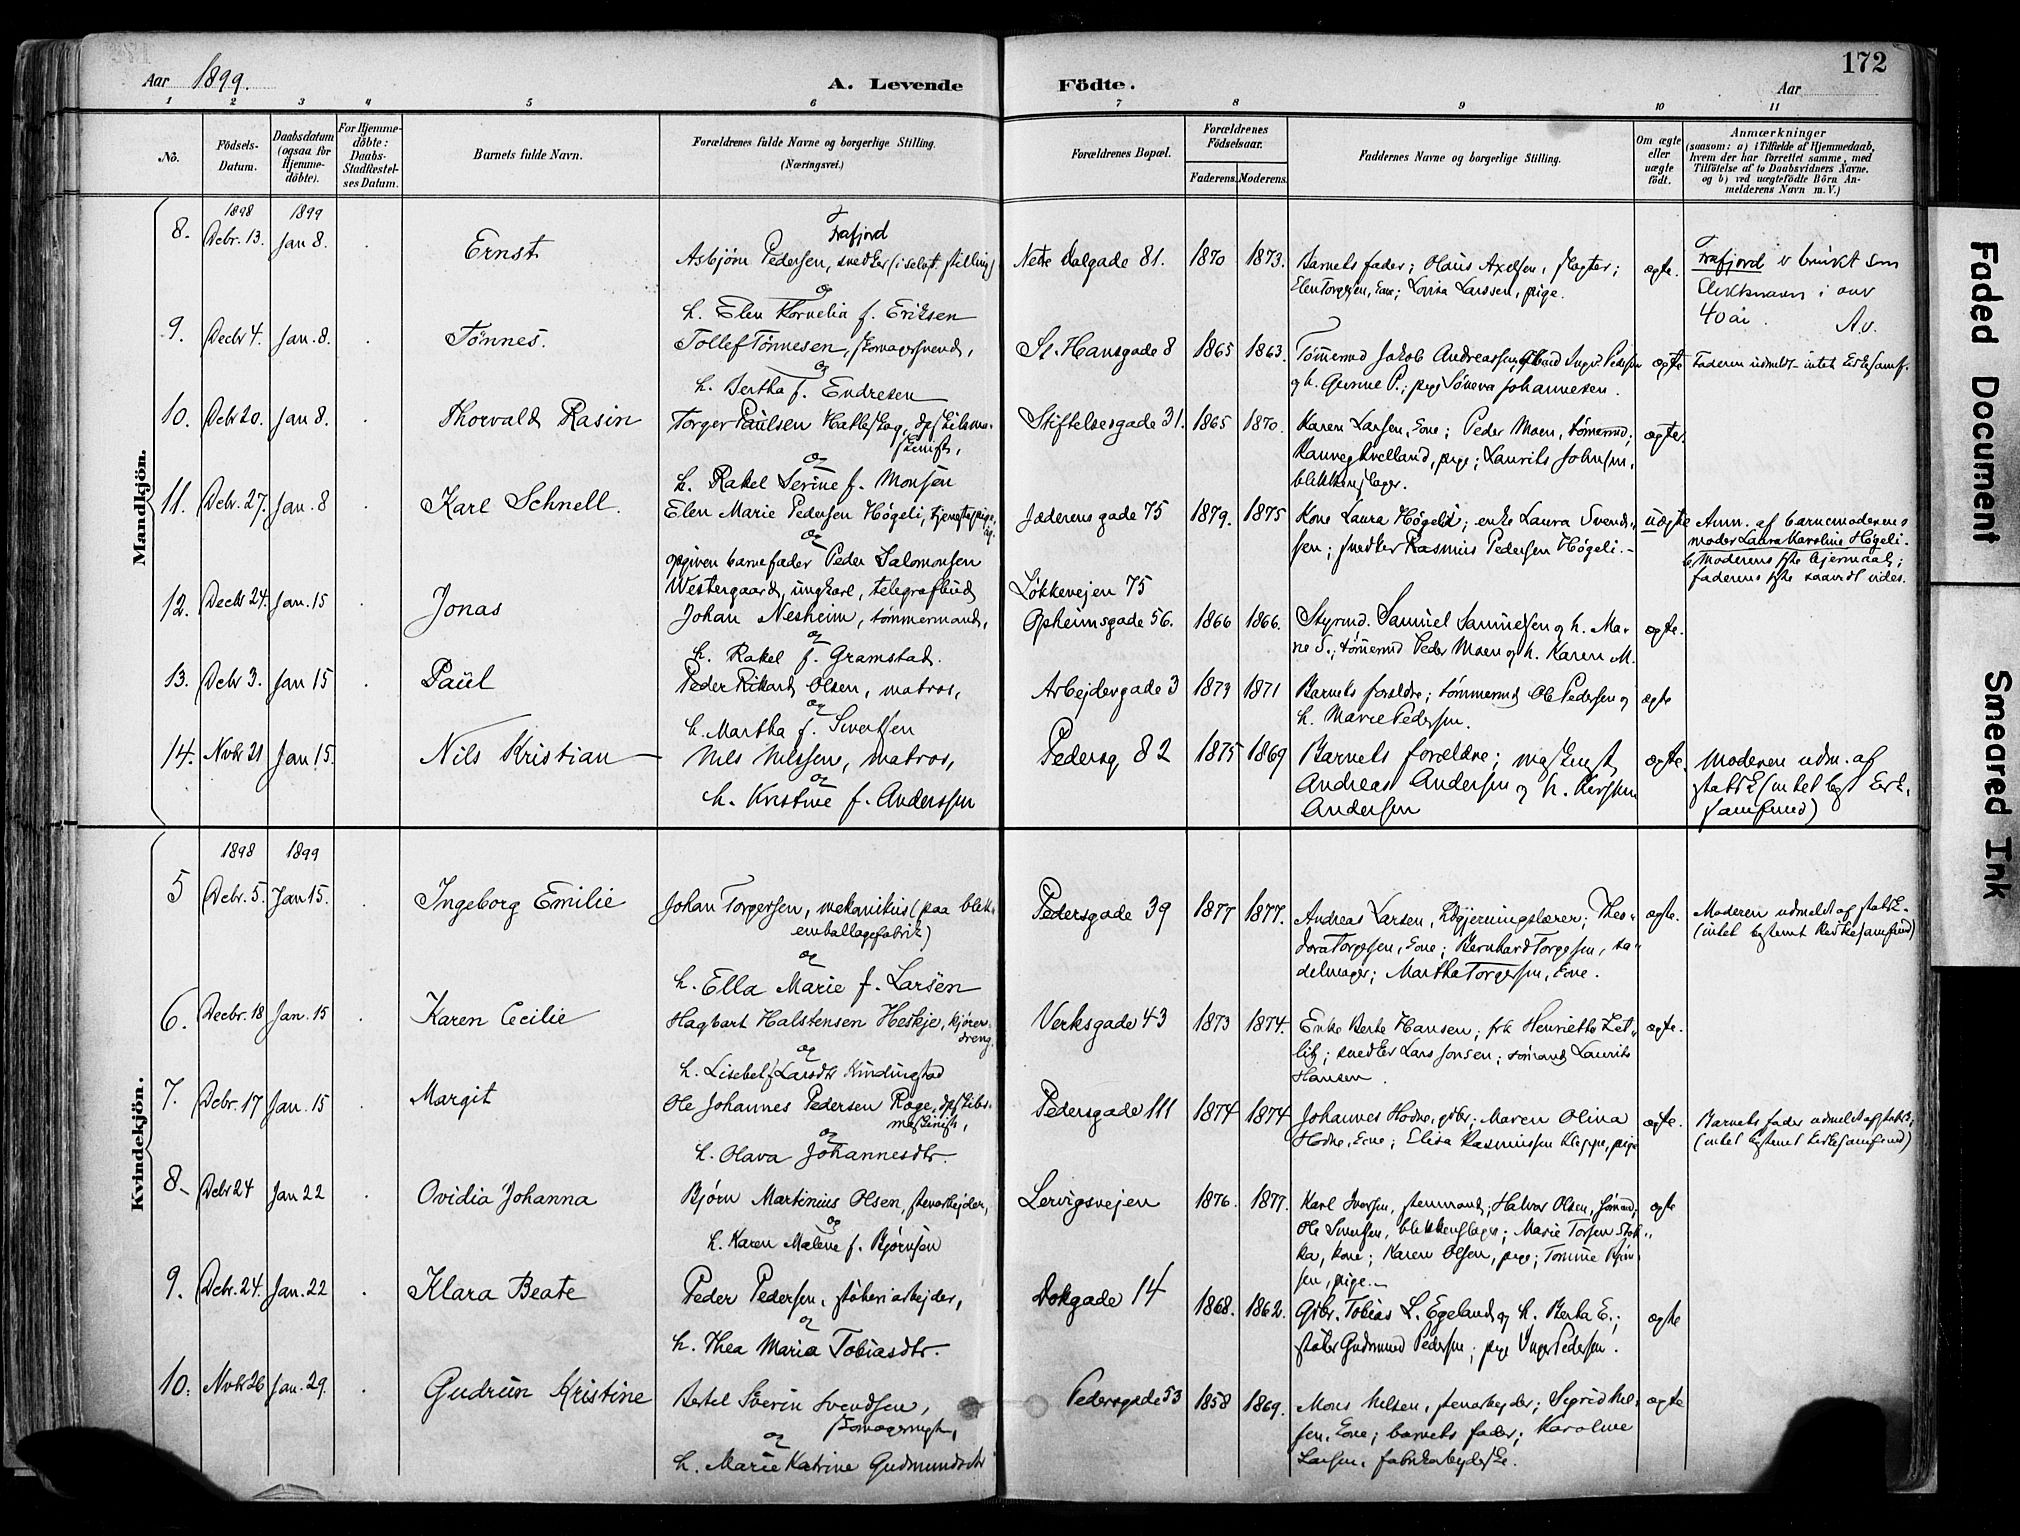 172
Aar 1899.
A. Levende Födte.
Aar
1 2 3 4 5 6 7 8 9 10 11
No.
Födsels-Datum.
Daabsdatum (ogsaa for Hjemme-döbte).
For Hjemme-döbte: Daabs-Stadfæstel-ses Datum.
Barnets fulde Navn.
Forældrenes fulde Navne og borgerlige Stilling.
(Næringsvei.)
Forældrenes Bopæl.
Forældrenes Födselsaar.
Faderens. Moderens.
Faddernes Navne og borgerlige Stilling.
Om ægte eller uægte födt.
Anmærkninger
(saasom: a) i Tilfælde af Hjemmedaab,
hvem der har forrettet samme, med
Tilföielse af to Daabsvidners Navne.
og b) ved uægtefödte Börn An-
melderens Navn m. V.)
Mandkjön.
1898 1899
8. Debr. 13. Jan 8. Ernst
Trafjord
Asbjörn Pedersen, snedker (i selvst. stilling)
og
h. Elen Kornelia f. Eriksen
Nedre Dalgade 81. 1870 1873.
Barnets fader; Olaus Axelsen, slagter;
Elen Torgersen, kone; Lovisa Larssen, pige.
ægte.
Trafjord er brukt som
slektsnavn i over
40 år. A.v.
9. Decbr 4. Jan. 8. Tønnes.
Tollef Tønnesen, skomagersvend,
og
h. Bertha f. Endresen
St. Hansgade 8 1865 1863.
Tømermd Jakob Andreassen, Ingv. Pedersen
og h. Gunne P.; pige Søneva Johannesen.
ægte
Faderen udmeldt - intet kirkesamf.
10. Debr 20. Jan 8. Thorvald Rasin
Torger Paulsen Hatleskog, dpskibsma-
skinist,
og
h. Rakel Serine f. Monsen
Stiftelsesgade 31. 1865 1870.
Karen Larsen, kone; Peder Moen, tømermd;
Ranveg Kvelland, pige; Laurits Johnsen,
blikkenslager.
ægte.
11. Debr. 27. Jan. 8 Karl Schnell.
Elen Marie Pedersen Høgeli, tjenestepige,
og
opgiven barnefader Peder Salomonsen
Westergaard, ungkarl, telegrafbud
Jæderensgade 75
Løkkevejen 75
1879. 1875
Kone Laura Høgeli; enke Laura Svend-
sen; snedker Rasmus Pedersen Høgeli.
uægte
Anm. af barnemoderens
moder Laura Karoline Høgeli.
Moderens 1ste lejermaal;
faderens 1ste saavidt vides.
12. Decbr 24. Jan. 15 Jonas
Johan Nesheim, tømmermand,
og
h. Rakel f. Gramstad.
Opheimsgade 56. 1866 1866.
Styrmd. Samuel Samuelsen og h. Ma-
ne S.; tømermd Peder Moen og h. Karen M.
ægte.
13. Debr 3. Jan 15 Paul
Peder Rikard Olsen, matros,
og
h. Martha f. Sivertsen
Arbejdergade 3 1873 1871
Barnets forældre; tømmermd Ole Pedersen og
h. Marie Pedersen.
ægte
14. Nvbr 21 Jan 15. Nils Kristian
Nils Nilssen, matros,
og
h. Kristine f. Anderssen
Pedersg 82 1875 1869
Barnets forældre; maskinist
Andreas Andersen og h. Kirsten
Andersen
ægte.
Moderen udm. af
statsk (intet best kirke,
samfund)
Kvindekjön.
1898 1899
5 Debr. 5. Jan 15. Ingeborg Emilie
Johan Torgersen, mekanikus (paa blik-
emballagefabrik)
og
h. Ella Marie f. Larsen
Pedersgade 39 1877 1877.
Andreas Larsen, bogjerningslærer; Theo-
dora Torgersen, kone; Bernhard Torgersen, sa-
delmager; Martha Torgersen, kone.
ægte.
Moderen udmeldt af statsk.
(intet bestemt kirkesamfund)
6. Decbr. 18 Jan. 15 Karen Cecilie
Hagbart Halstensen Heskje, kjører-
dreng.
og
h. Lisebet Larsdtr Kindingstad
Verksgade 43 1873 1874.
Enke Berte Hansen; frk Henriette Zet-
litz; snedker Lars Jonsen; sømand Laurits
Hansen.
ægte.
7. Debr. 17 Jan. 15 Margit
Ole Johannes Pedersen Rage, dpskibs-
maskinist,
og
h. Olava Johannesdtr.
Pedersgade 111 1874 1874
Johannes Hodne, gdbr; Maren Olina
Hodne, kone; Elisa Rasmussen Kleppe, pige
ægte.
Barnets fader udmeldt af statsk;
(intet bestemt kirkesamfund)
8 Debr 24 Jan 22 Ovidia Johanna
Bjørn Martinius Olsen, stenarbejder,
og
h. Karen Malene f. Bjørnsen
Lervigsvejen 1876. 1877.
Karl Iversen, stenmand; Halvor Olsen, sømand;
Ole Sivertsen, blikkenslager; Marie Torsen Stok-
ka, kone; Karen Olsen, pige; Tomine Bjørn-
sen, pige.
ægte
9. Debr. 24. Jan. 22 Klara Beate
Peder Pedersen, støberiarbejder,
og
h. Thea Maria Tobiasdtr.
Dokgade 14 1868. 1862.
Gdbr. Tobias L. Egeland og h. Berta E.;
støber Gudmund Pedersen; pige Inger Pedersen.
ægte
10. Nvbr 26 Jan. 29. Gudrun Kristine
Bertel Sverin Svendsen,
skomagersvend,
og
h. Marie Katrine Gudmundsdtr
Pedersgade 53 1858 1869.
Mons Nilsen, stenarbejder; Sigrid Nil-
sen, kone; barnets fader; Karoline
Larsen, fabrikarbejderske.
ægte
Faded Document
Smeared Ink